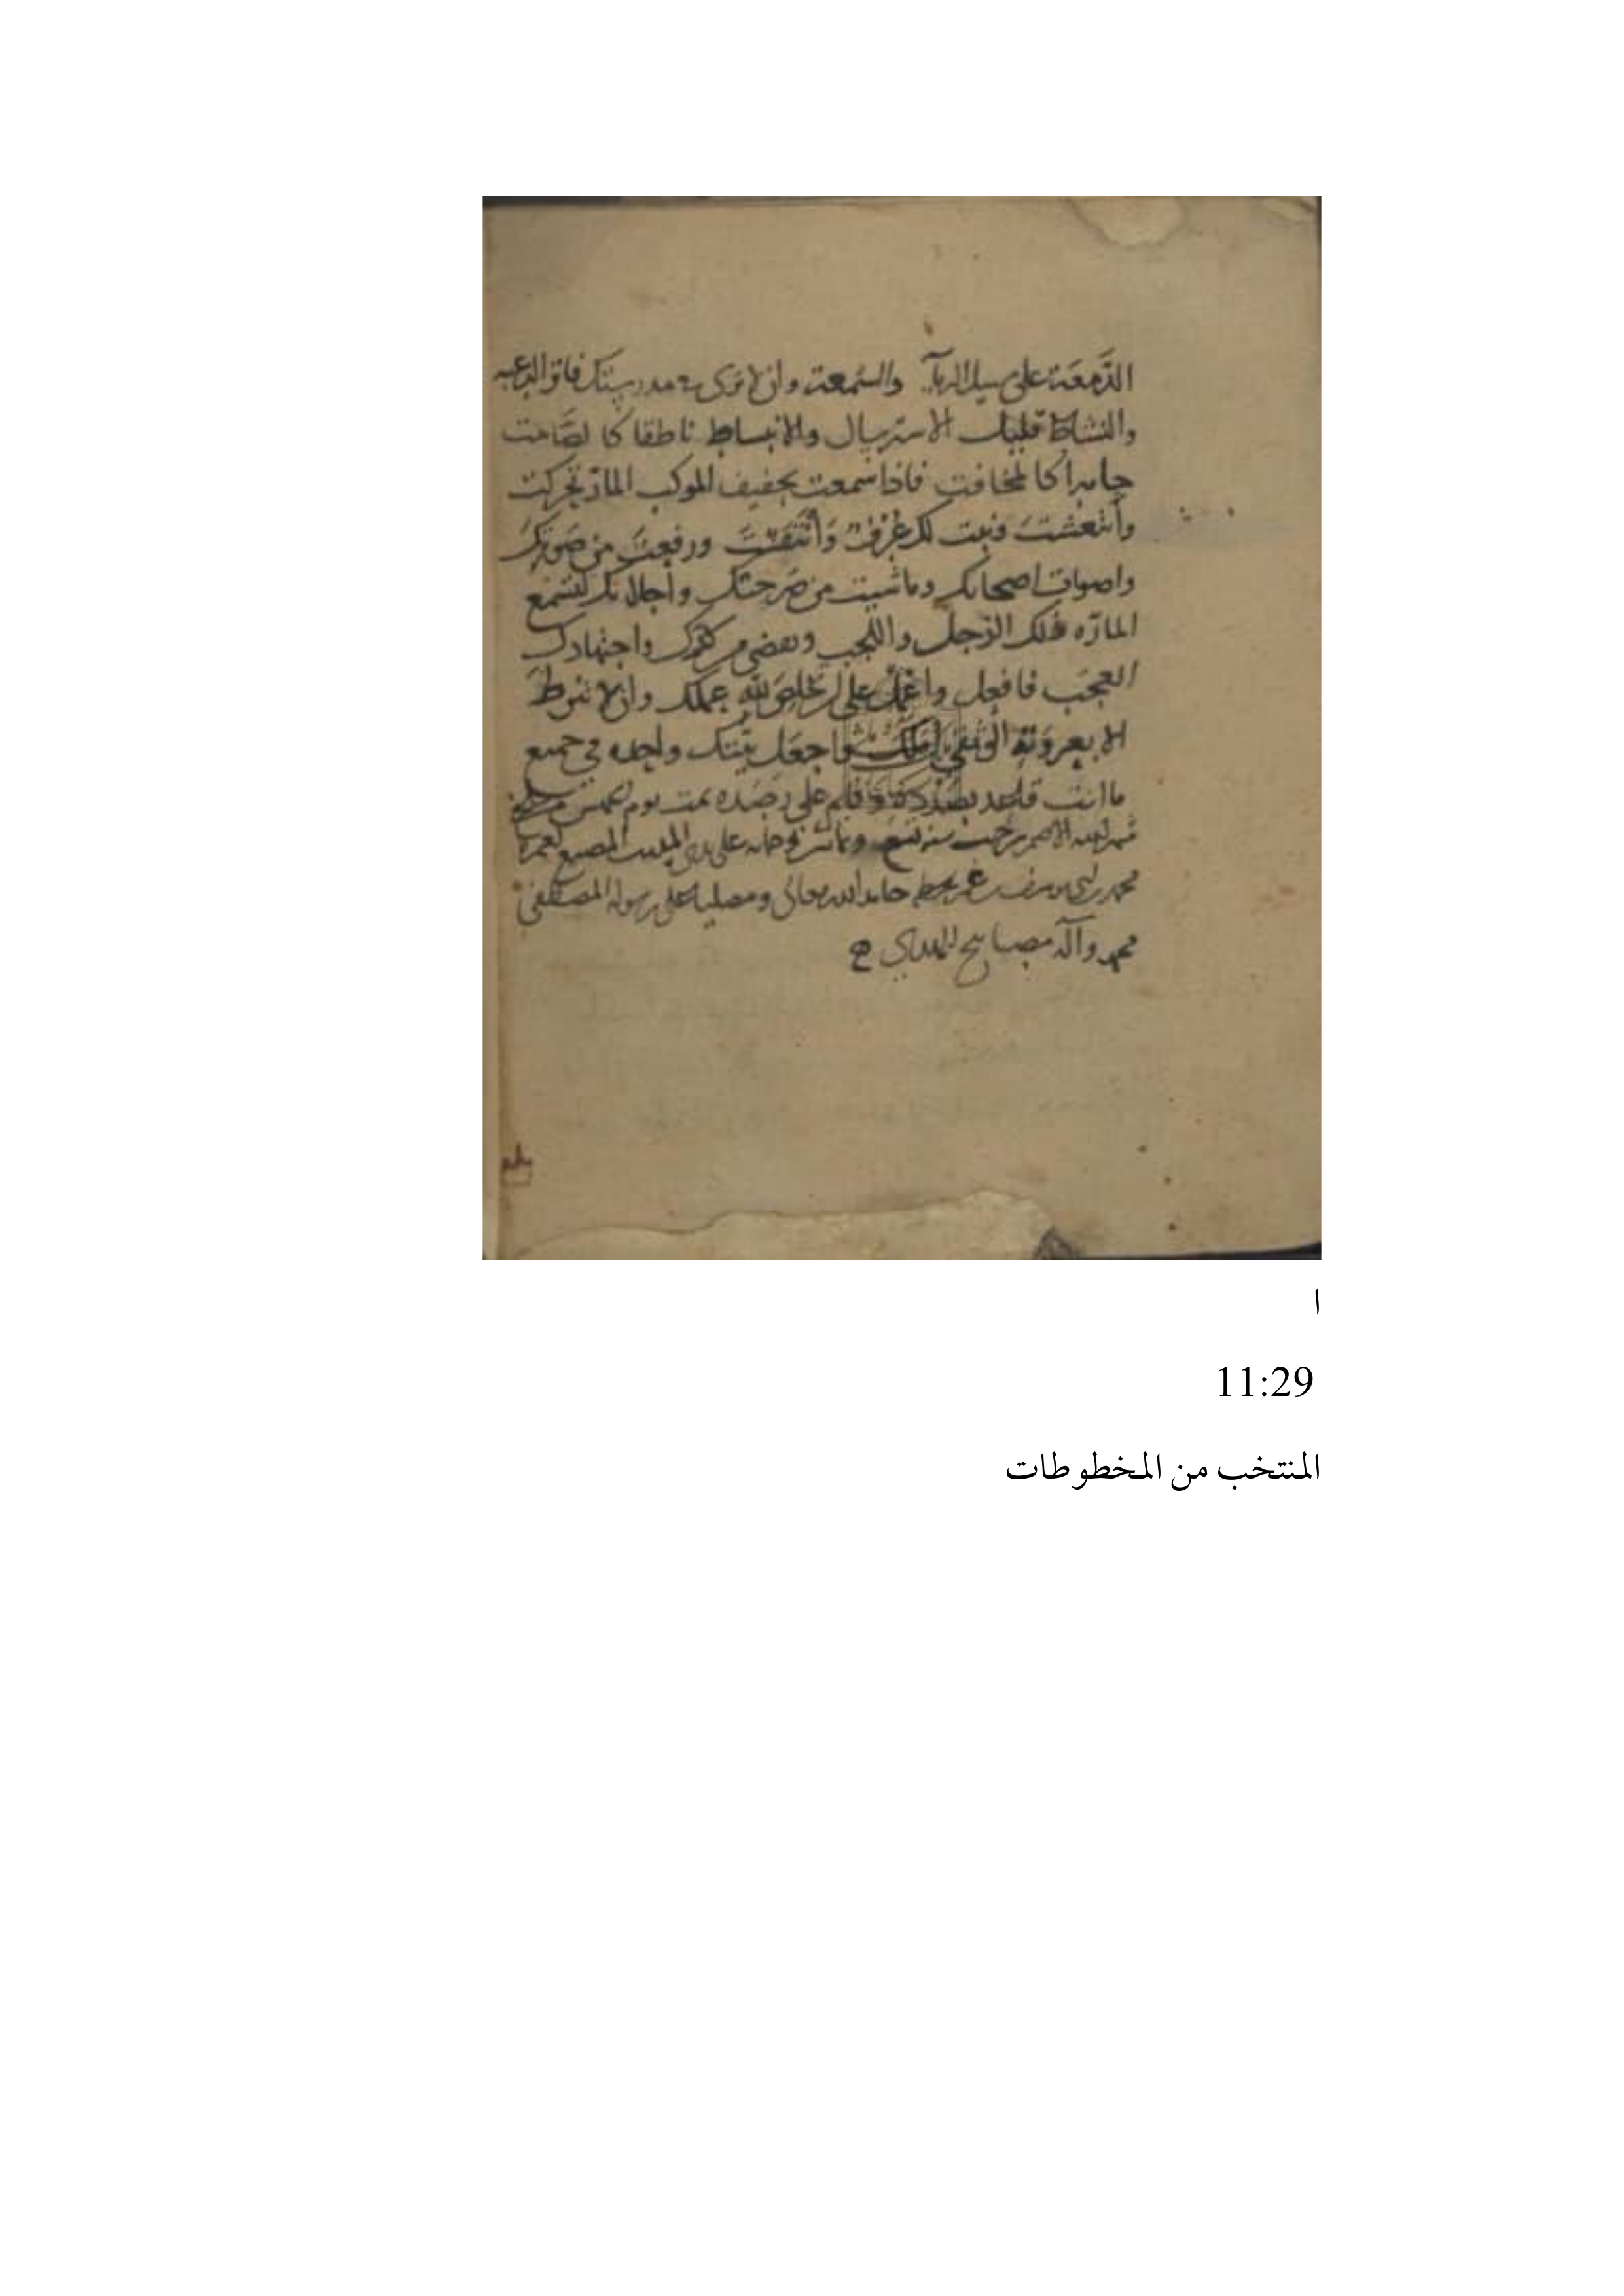 الدَّمعَة على سبيل الرياء والسُّمعة وان لا ترى مدرستك فاتر الرغبه
والنشاط قليل الاسترسال والانبساط ناطقا كالصَّامت
جاهرا كالمخافت فاذا سمعت بحفيف الموكب المارّ تحركت
وأنتعشت ونبت لك عُرْفٌ وَأنْتَفشتَ ورفعت من صَوتِكَ
واصوات اصحابك وماشيت من صَرختك واجلابك لتسمع
المارّه ذلك الزجل واللجب وتقضى من كدك واجتهادك
العجَبَ فافعل واعمل على ان تخلص لله عملك وان لا تنوط
الا بعروته الوثقى املك واجعل نيّتك واحده في جميع
ما انت قاعد بصَدَدِه وقايم على رصَده تمت يوم الخميس
شهر الله الاصم رجب سنه تسع وثمانين على يدى المذنب المضيع لعمره
محمد بن بخطه حامدا لله تعالى ومصليا على رسوله المصطفى
محمد وآله مصابيح الهدى
ا
11:29
المنتخب من المخطوطات